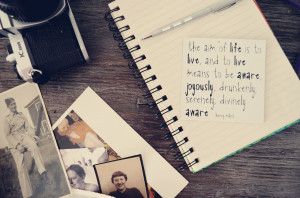 the aim of life is to
live, and to live
means to be aware
joyously, drunkenly,
serenely, divinely
aware